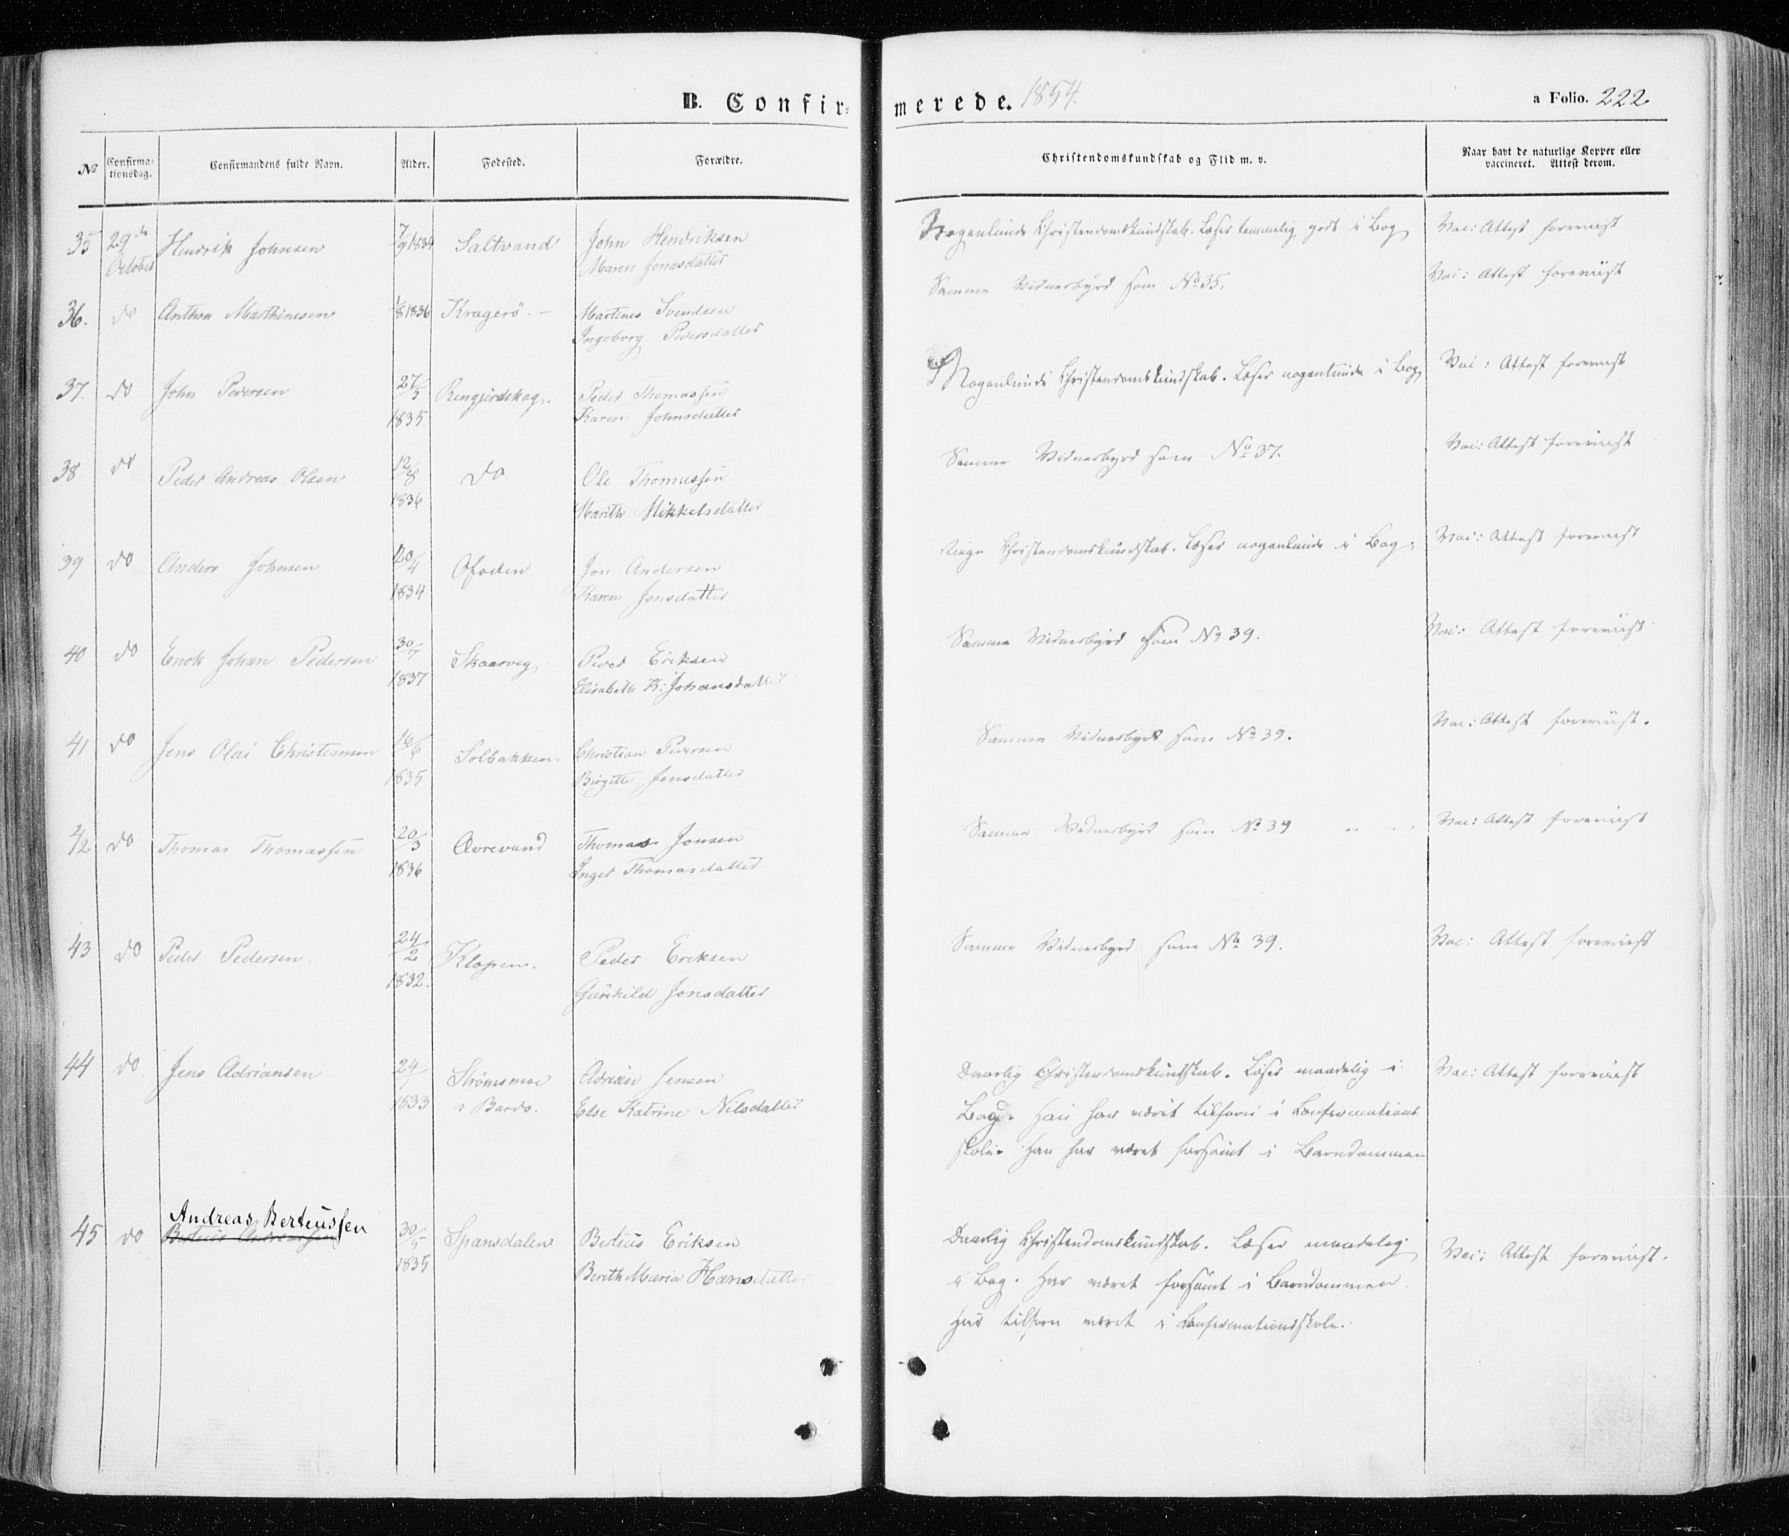 B. Confir- merede. 1854.
a Folio. 222.
No Confirmationsdag. Confirmandens fulde Navn. Alder. Fødested. Forældre. Christendomskundskab og Flid m. v. Naar havt de naturlige Kopper eller vaccineret. Attest derom.
35 29de October Hendrik Johnsen 7/9 1834 Saltvand John Hendriksen Nogenlunde Christendomskundskab. Læser temmelig godt i Bog Vac: Attest foreviist
Maren Jonasdatter
36. do Anthon Marthinesen /8 1836 Kragerö Martines Svendsen Samme Vidnesbyrd som No 35. Vac: Attest foreviist
Ingeborg Pedersdatter
37. do John Pedersen 27/5 1835 Peder Thomassen Nogenlunde Christendomskundskab. Læser nogenlunde i Bog Vac: Attest foreviist
Karen Johnsdatter
38. do Peder Andreas Olsen 12/8 1836 do. Ole Thomassen Samme Vidnesbyrd som No 37. Vac: Attest foreviist
Marith Mikkelsdatter
39 do Anders Johnsen 20/4 1834 Ofoden Jon Andersen Ringe Christendomskundskab. Læser nogenlunde i Bog. Vac: Attest foreviist
Karen Jonsdatter
40 do Enok Johan Pedersen 30/7 1837 Skaarveg Peder Eriksen Samme Vidnesbyrd som No 39. Vac: Attest foreviist
Elisabeth K: Johansdatter
41 do Jens Olai Christiansen 16/6 1835 Solbakken. Christian Pedersen Samme Vidnesbyrd som No 39. Vac: Attest foreviist.
Birgitte Jensdatter
42 do Thomas Thomassen 20/3 1836 Øvrevand Thomas Jonsen Samme Vidnesbyrd som No 39 Vac: Attest foreviist
Inger Thomasdatter
43 do Peder Pedersen. 24/2 1832. Klopen. Peder Eriksen Samme Vidnesbyrd som No 39. Vac: Attest foreviist
Gunhild Jonsdatter
44 do. Jens Adriansen 24/1 1833 Strömsmoe i Bardo. Adrian Jensen Daarlig Christendomskundskab. Læser maadelig i Vac: Attest foreviist
Else Katrine Nilsdatter Bog. Han har været tilforn i Confirmations
skole. Han har været forsömt i Barndommen
Andreas Berteussen
45 do Berteus Andreassen 30/5 1835 Spansdalen Berteus Eriksen Daarlig Christendomskundskab. Læser maadelig Vac: Attest foreviist.
Berith Maria Hansdatter i Bog. Har været forsömt i Barndommen.
Har tilforn været i Confirmationsskole.